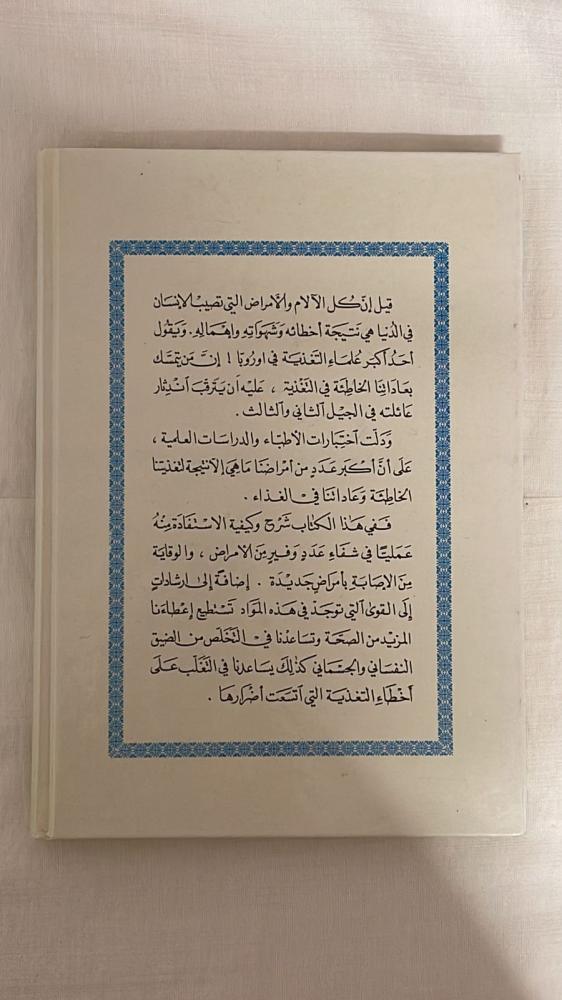 قيل إن كل الآلام والأمراض التي تصيب الإنسان
في الدنيا هي نتيجة أخطائه وشهواته وإهماله. ويقول
أحد أكبر علماء التغذية في اوروبا ! إن من يتمسك
بعاداتنا الخاطئة في التغذية ، عليه أن يترقب اندثار
عائلته في الجيل الثاني والثالث .
ودلت اختبارات الأطباء والدراسات العلمية ،
على أن أكبر عدد من أمراضنا ما هي إلا نتيجة لتغذيتنا
الخاطئة وعاداتنا في الغذاء .
ففي هذا الكتاب شرح وكيفية الاستفادة منه
عمليا في شفاء عدد وفير من الامراض ، والوقاية
من الإصابة بأمراض جديدة . إضافة إلى ارشادات
إلى القوى التي توجد في هذه المواد تستطيع إعطاءنا
المزيد من الصحة وتساعدنا في التخلص من الضيق
النفساني والجسماني كذلك يساعدنا في التغلب على
أخطاء التغذية التي اتسعت أضرارها .